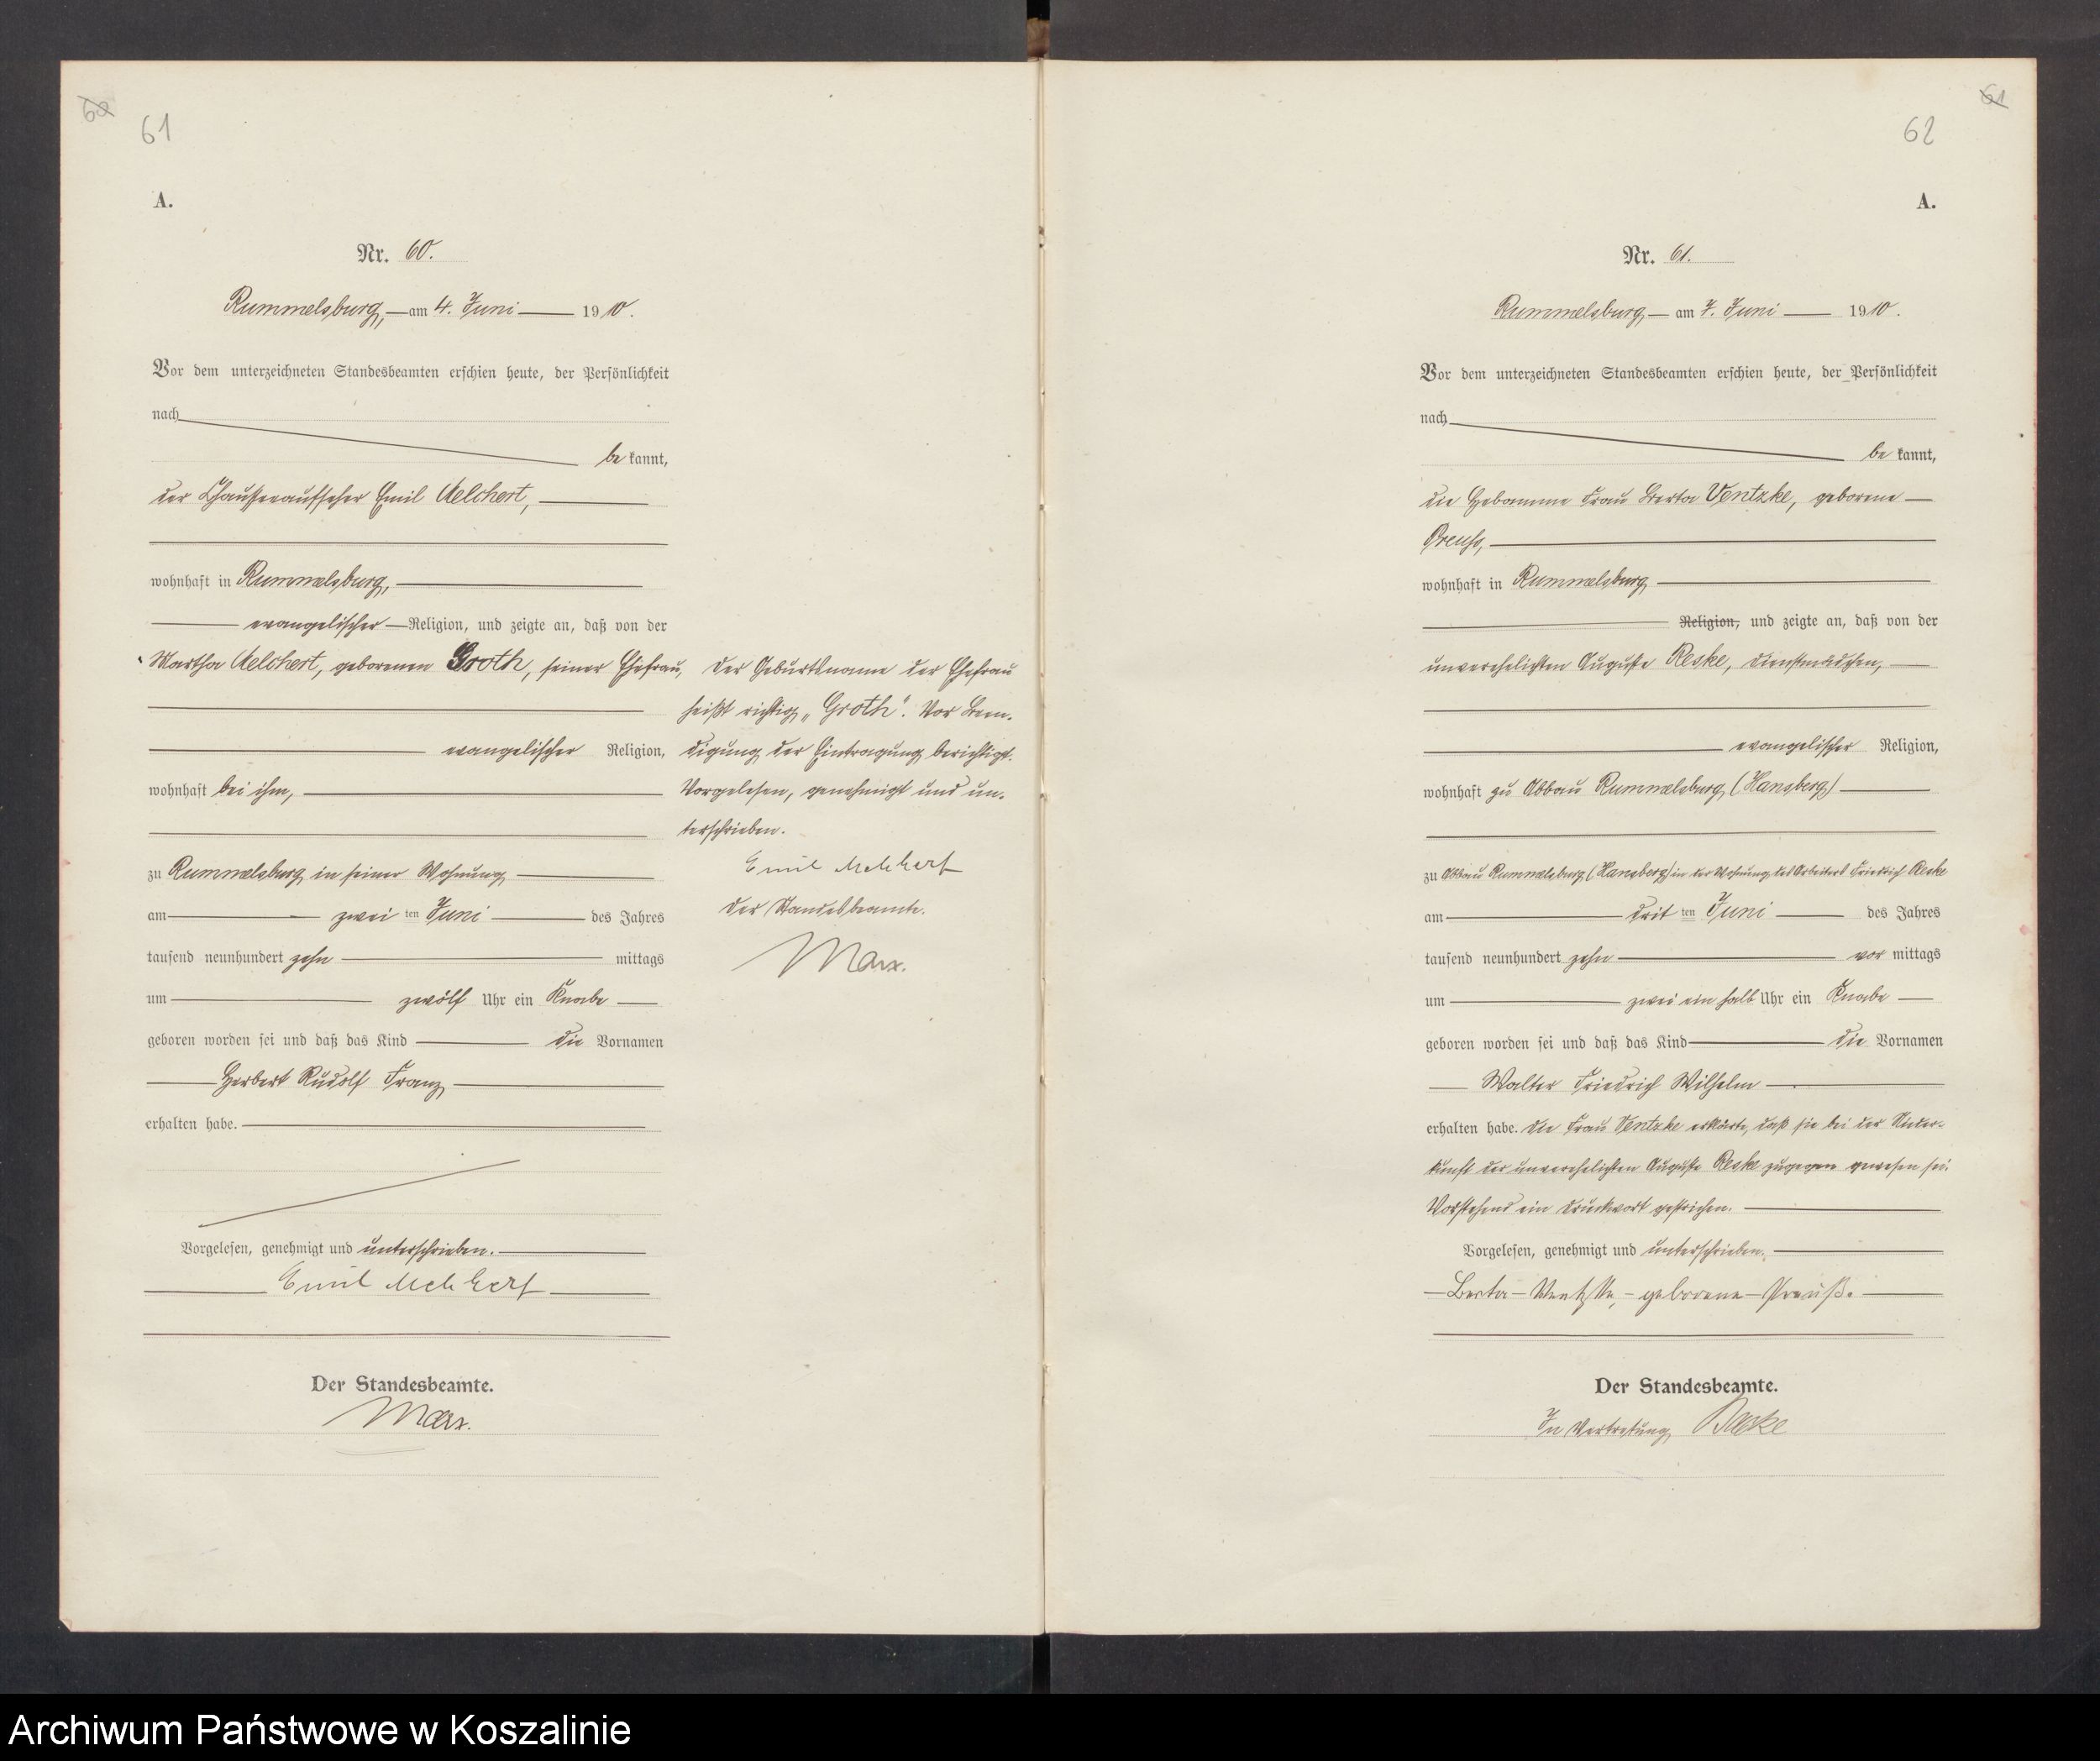 60
61
A.
Nr. 60.
Rummelsburg, am 4. Juni 1910.
Vor dem unterzeichneten Standesbeamten erschien heute, der Persönlichkeit
nach
be kannt,
der Chausseeaufseher Emil Melchert,
wohnhaft in Rummelsburg,
evangelischer Religion, und zeigte an, daß von der
Martha Melchert, geborenen Groth, seiner Ehefrau,
evangelischer Religion,
wohnhaft bei ihm,
zu Rummelsburg in seiner Wohnung
am zwei ten Juni des Jahres
tausend neunhundert zehn mittags
um zwölf Uhr ein Knabe
geboren worden sei und daß das Kind die Vornamen
Herbert Rudolf Franz
erhalten habe.
Vorgelesen, genehmigt und unterschrieben.
Emil Melchert
Der Standesbeamte.
Marx.
Der Geburtsname der Ehefrau
heißt richtig „Groth". Vor Been-
digung der Eintragung berichtigt.
Vorgelesen, genehmigt und un-
terschrieben.
Emil Melchert
Der Standesbeamte.
Marx.
61
62
A.
Nr. 61.
Rummelsburg am 7. Juni 1910.
Vor dem unterzeichneten Standesbeamten erschien heute, der Persönlichkeit
nach
be kannt,
die Hebamme Frau Berta Ventzke, geborene
Preuß,
wohnhaft in Rummelsburg
Religion, und zeigte an, daß von der
unverehelichten Auguste Reske, Dienstmädchen,
evangelischer Religion,
wohnhaft zu Abbau Rummelsburg (Hansberg)
zu Abbau Rummelsburg (Hansberg) in der Wohnung des Arbeiters Friedrich Reske
am drit ten Juni des Jahres
tausend neunhundert zehn vor mittags
um zwei ein halb Uhr ein Knabe
geboren worden sei und daß das Kind die Vornamen
Walter Friedrich Wilhelm
erhalten habe. Die Frau Ventzke erklärte, daß sie bei der Nieder-
kunft der unverehelichten Auguste Reske zugegen gewesen sei.
Vorstehend ein Druckwort gestrichen.
Vorgelesen, genehmigt und unterschrieben.
Berta Ventzke, geborene Preuß.
Der Standesbeamte.
In Vertretung
Archiwum Państwowe w Koszalinie